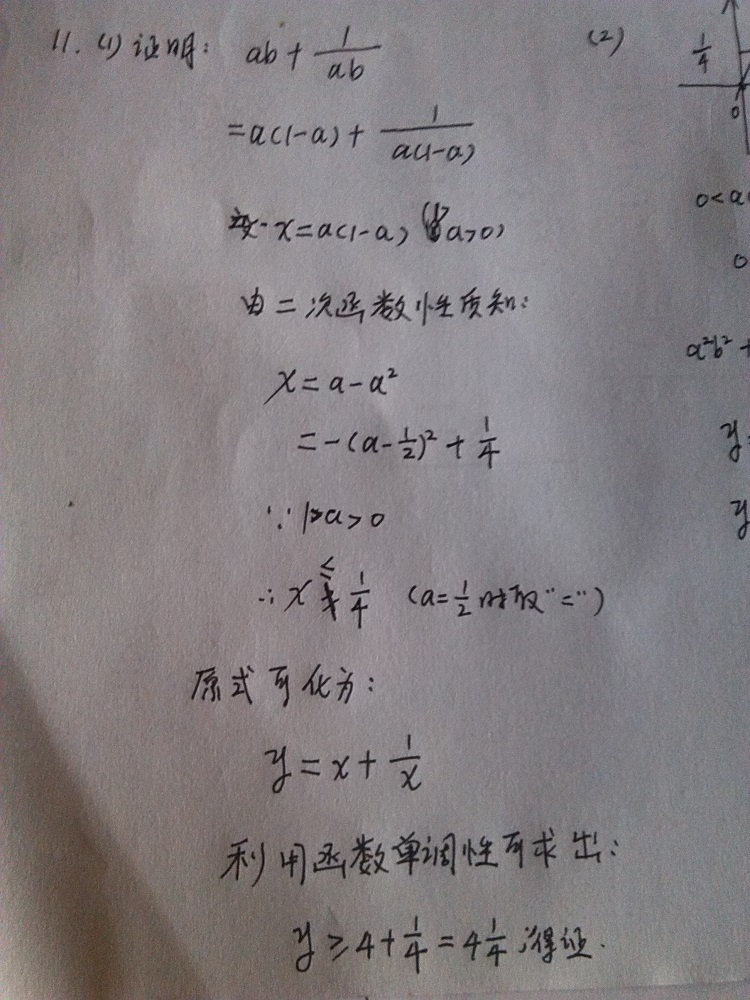 11. (1) 证明: ab + 1/ab
= a(1-a) + 1/a(1-a)
x = a(1-a) (a>0)
由二次函数性质知:
x = a - a²
= -(a - 1/2)² + 1/4
∵ 1>a>0
∴ x ≤ 1/4 (a = 1/2 时取"=")
原式可化为:
y = x + 1/x
利用函数单调性可求出:
y ≥ 4 + 1/4 = 4 1/4 得证.
(2)
1/4
0
0<a
0
a²b² +
y=
y